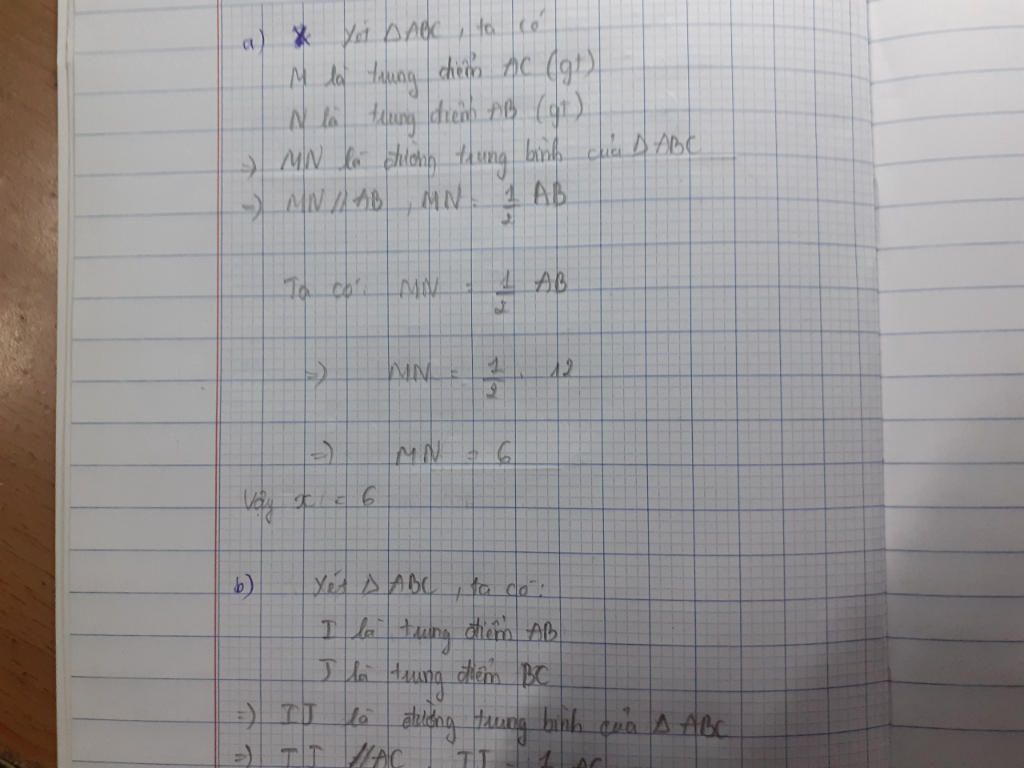 a) Xét ΔABC, ta có
M là trung điểm AC (gt)
N là trung điểm AB (gt)
=) MN là đường trung bình của ΔABC
=) MN // AB, MN = 1/2 AB
Ta có: MN = 1/2 AB
=) MN = 1/2 . 12
=) MN = 6
Vậy x = 6
b) Xét ΔABC, ta có:
I là trung điểm AB
J là trung điểm BC
=) IJ là đường trung bình của ΔABC
=) IJ // AC, IJ = 1 AC